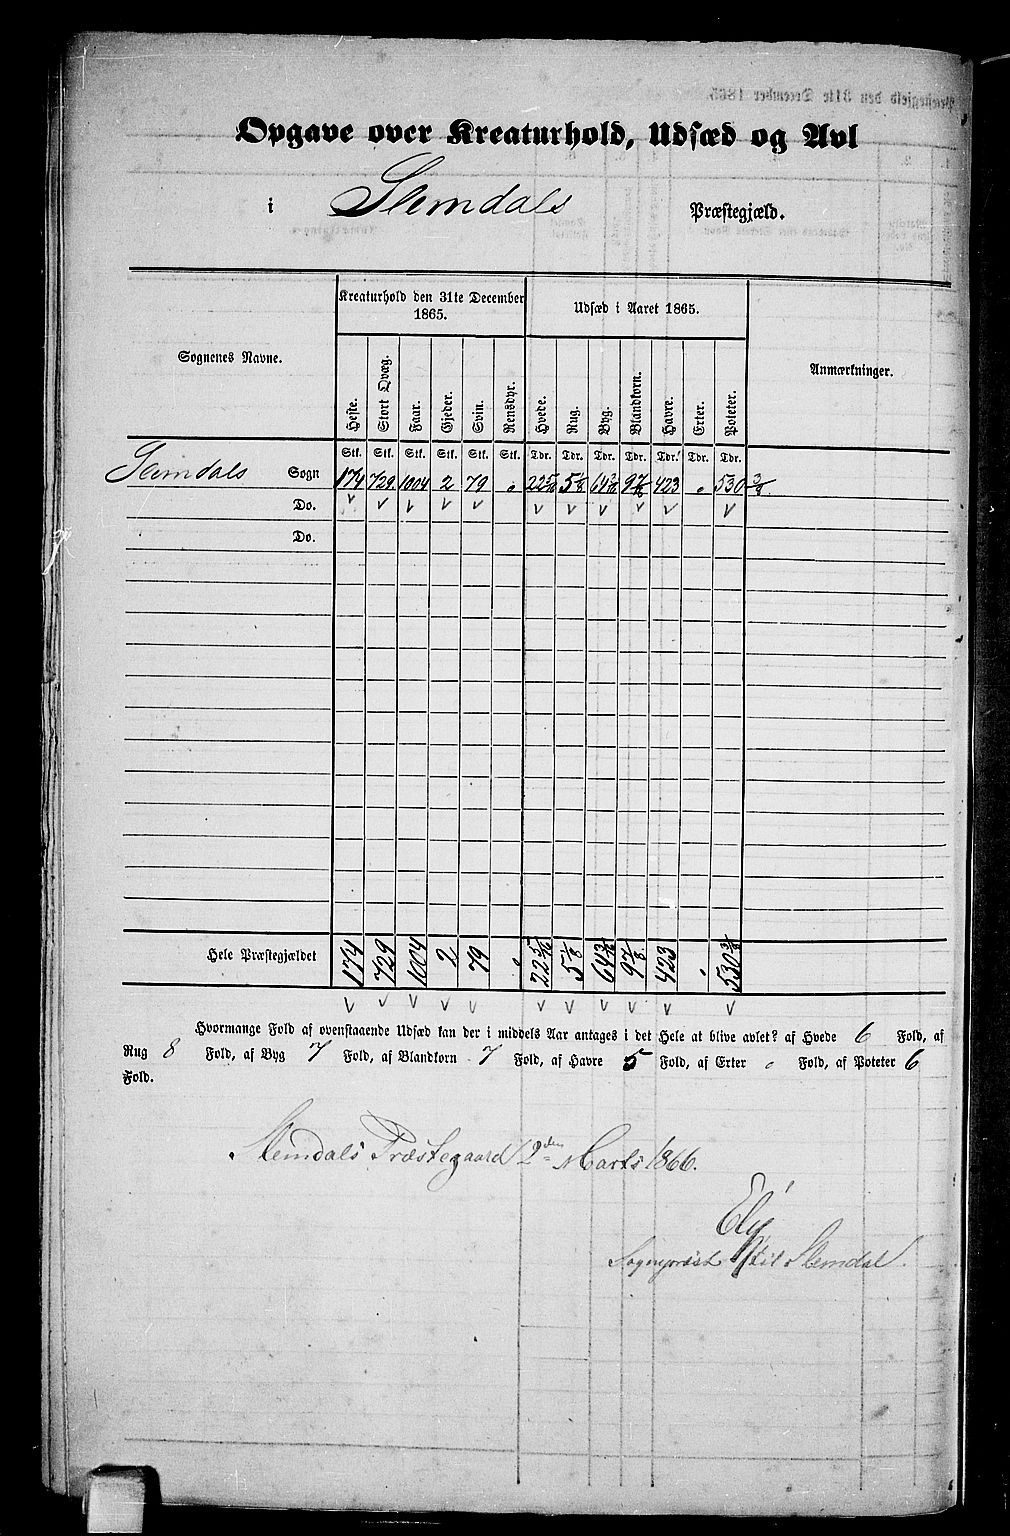 Opgave over Kreaturhold, Udsæd og Avl
i Slemdals Præstegjæld.
Sognenes Navne.
Kreaturhold den 31te December 1865.
Udsæd i Aaret 1865.
Anmærkninger.
Heste. Stort Qvæg. Faar. Gjeder. Svin. Rensdyr. Hvede. Rug. Byg. Blandkorn. Havre. Erter. Poteter.
Stk. Stk. Stk. Stk. Stk. Stk. Tdr. Tdr. Tdr. Tdr. Tdr. Tdr. Tdr.
Slemdals Sogn 174 729. 1004 2 79 " 22 5/16 5 1/8 64 3/16 97/8 423 " 530 3/8
Do.
Do.
Hele Præstegjældet 174 729 1004 2 79 " 22 5/16 5 1/8 64 3/16 97/8 423 " 530 3/8
Hvormange Fold af ovenstaaende Udsæd kan der i middels Aar antages i det Hele at blive avlet? af Hvede 6 Fold, af
Rug 8 Fold, af Byg 7 Fold, af Blandkorn 7 Fold, af Havre 5 Fold, af Erter " Fold, af Poteter 6
Fold.
Slemdals Præstegaard 12den Marts 1866.
Sognepræst til Slemdal.